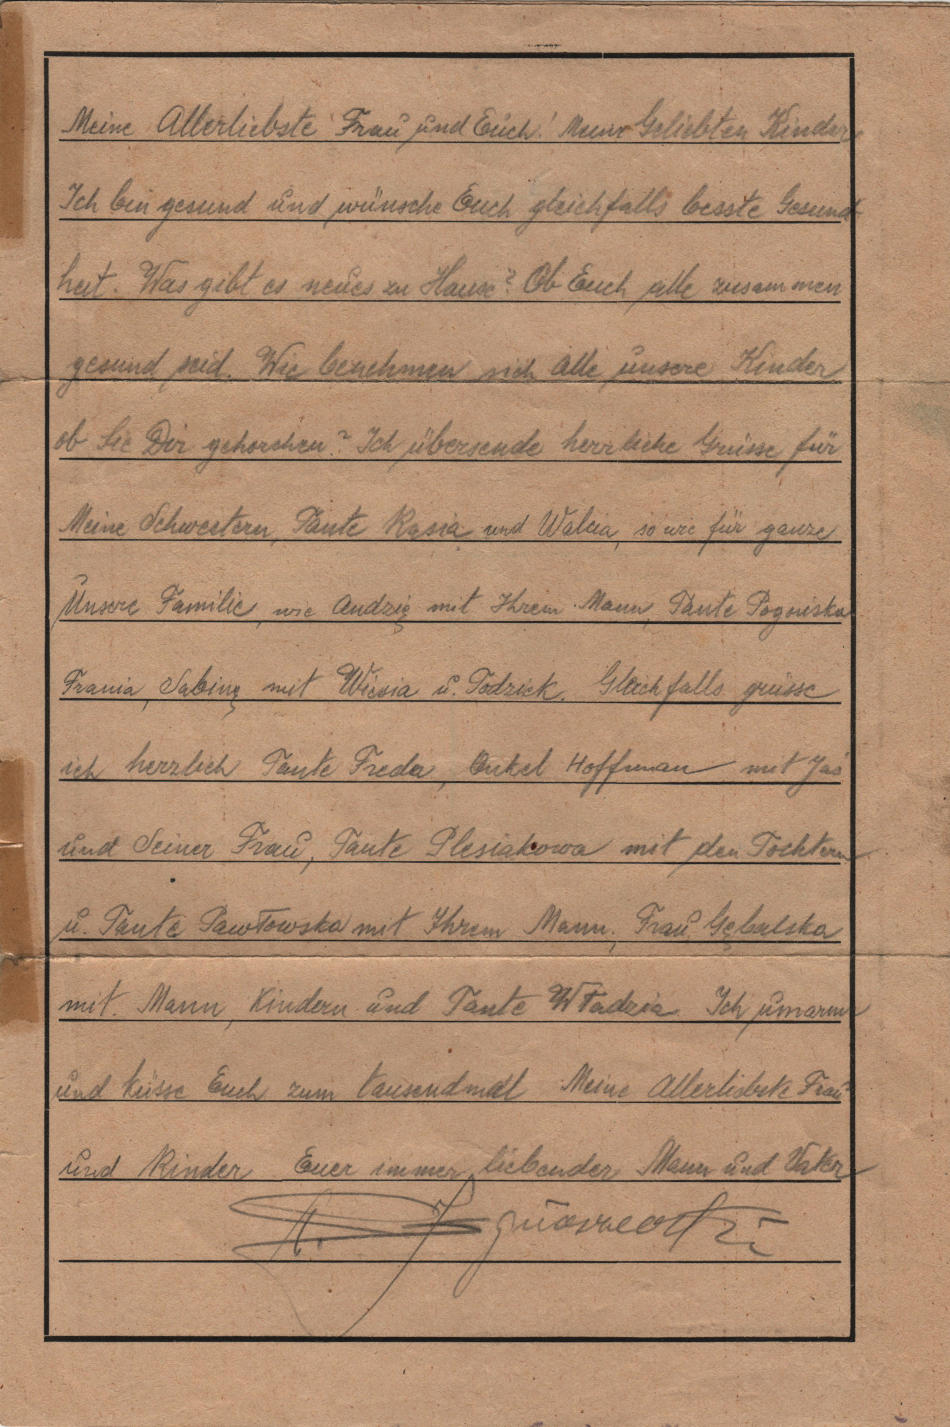 Meine Allerliebste Frau und Euch! Meine Geliebten Kinder
Ich bin gesund und wünsche Euch gleichfalls besste Gesund
heit. Was gibt es neues zu Hause? Ob Euch alle zusammen
gesund seid. Wie benehmen sich alle unsere Kinder
ob Sie Dir gehorchen? Ich übersende herzliche Grüsse für
Meine Schwestern, Tante Kasia und Walcia, so wie für ganze
Unsere Familie, wie Andzię mit Ihrem Mann, Tante
Frania, Sabinę mit Wiesia u. Tadzick. Gleichfalls grüsse
ich herzlich Tante Freda, Onkel Hoffman mit Jaś
und Seiner Frau, Tante Plesiakowa mit den Tochtern
u. Tante Pawłowska mit Ihrem Mann, Frau Gębalska
mit. Mann, Kindern und Tante Władzia. Ich umarme
und küsse Euch zum tausendmal Meine Allerliebste Frau
und Kinder Euer immer liebender Mann und Vater